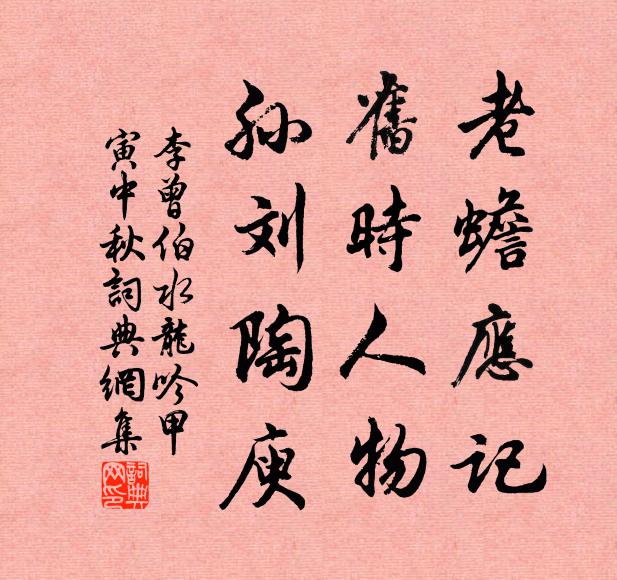 老蟾應記
舊時人物
孙刘陶庾
李曾伯水龍吟甲
寅中秋詞典網集
詞典
网印